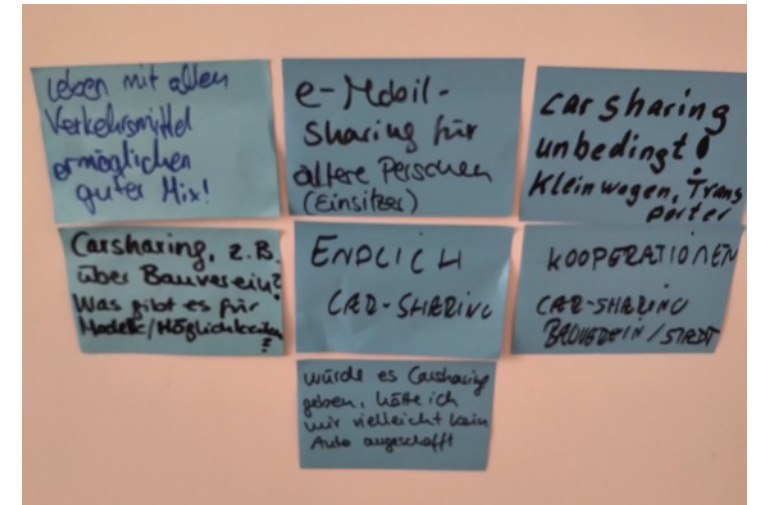 Leben mit allen
Verkehrsmittel
ermöglichen
guter Mix!
e-Mobil-
sharing für
ältere Personen
(Einsitzer)
car sharing
unbedingt!
Kleinwagen, Trans
porter
Carsharing, z.B.
über Bauverein?
Was gibt es für
Modelle/Möglichkeiten
?
ENDLICH
CAR-SHARING
KOOPERATIONEN
CAR-SHARING
BAUVEREIN/STADT
würde es Carsharing
geben, hätte ich
mir vielleicht kein
Auto angeschafft